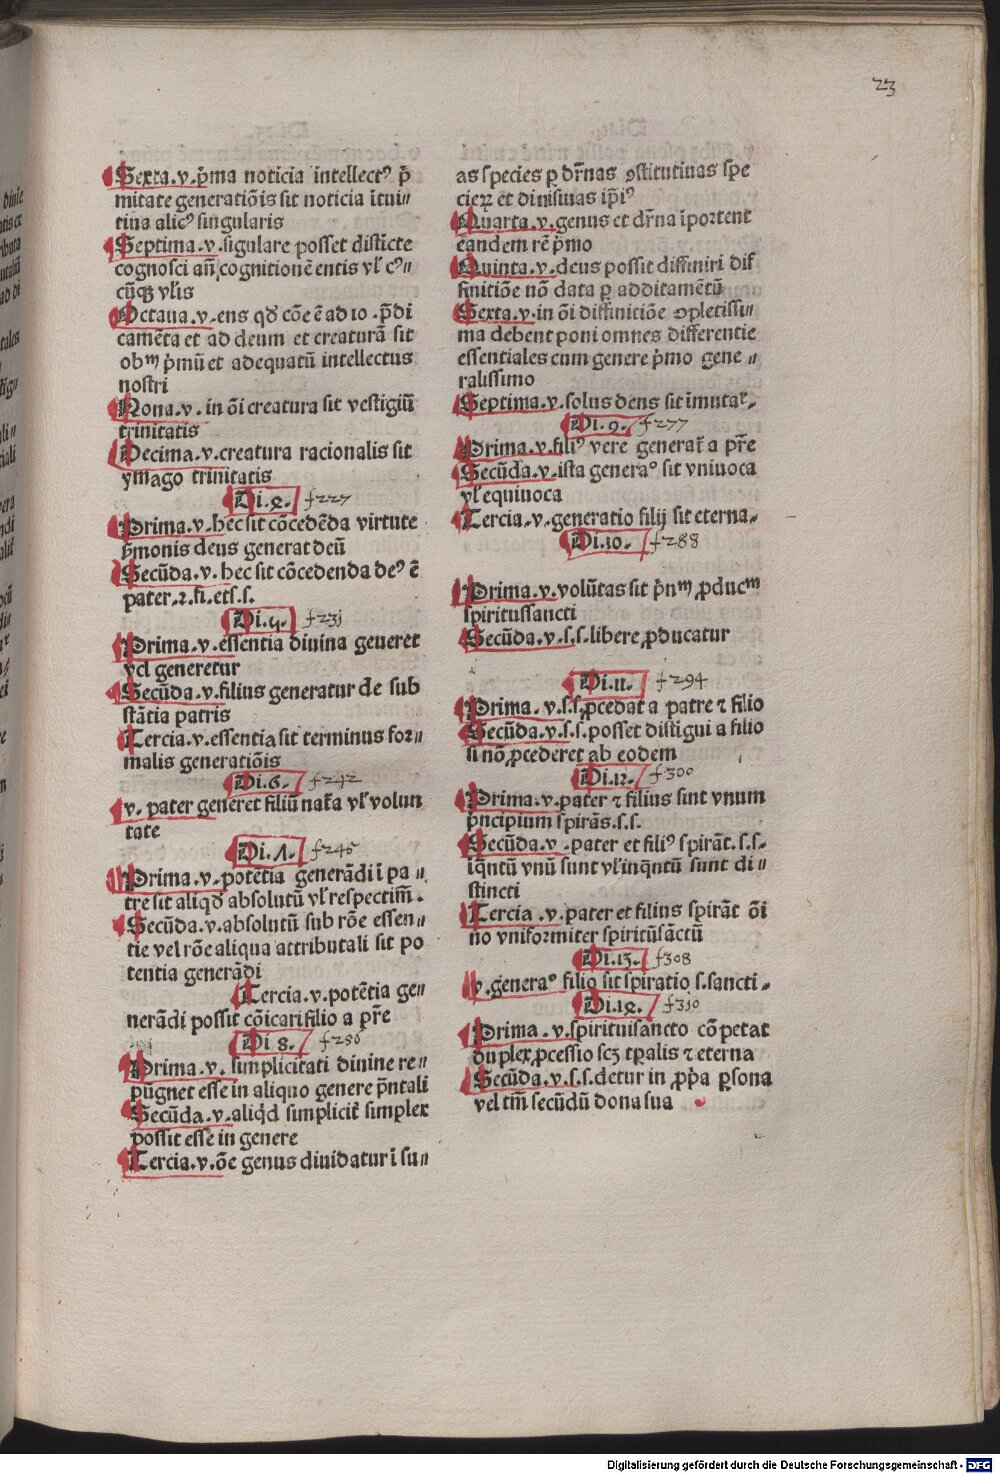 23
Sexta.v.p̄ma noticia intellectꝰ p̄
mitate generatiōis sit noticia ītui〃
tiua alicꝰ singularis
Septima.v.sigulare posset disticte
cognosci añ cognitionē entis vl̕ cꝰ〃
cūqꝫ vl̕is
Octaua.v.ens qd̕ cōe ē ad 10.p̄di
camēta et ad deum et creaturā sit
obᵐ p̄mū et adequatū intellectus
nostri
Nona.v.in ōi creatura sit vestigiū
trinitatis
Decima.v.creatura racionalis sit
ymago trinitatis
Di.2. f227
Prima.v.hec sit cōcedēda virtute
p̄monis deus generat deū
Secūda.v.hec sit cōcedenda deꝰ ē
pater.⁊.fi.ets̄.s.
Di.4. f231
Prima.v.essentia diuina geueret
vel generetur
Secūda.v.filius generatur de sub
stātia patris
Tercia.v.essentia sit terminus for〃
malis generatiōis
Di.6. f242
v. pater generet filiū nat̄a vl̕ volun
tate
Di.7. f245
Prima.v.potētia generādi ī pa〃
tre sit aliqd̕ absolutū vl̕ respectiꝰm.
Secūda.v.absolutū sub rōe essen〃
tie vel rōe aliqua attributali sit po
tentia generādi
Tercia.v.potētia ge〃
nerādi possit cōicari filio a pr̄e
Di 8. f256
Prima.v. simplicitati diuine re〃
pūgnet esse in aliquo genere p̄ntali
Secūda.v.aliqd̕ simplicit̄ simplex
possit esse in genere
Tercia.v.ōe genus diuidatur ī su〃
as species p̱ dr̄nas ꝯstitutiuas spe
cieꝝ et diuisiuas ip̄iꝰ
Quarta.v.genus et dr̄na īportent
eandem rē p̄mo
Quinta.v.deus possit diffiniri dif
finitiōe nō data p̱ additamētū
Sexta.v.in ōi diffinitiōe ꝯpletissi〃
ma debent poni omnes differentie
essentiales cum genere p̄mo gene〃
ralissimo
Septima.v.solus deus sit īmutat̄.
Di.9. f277
Prima.v.filiꝰ vere generat̄ a pr̄e
Secūda.v.ista generaꝰ sit vniuoca
vl̕ equiuoca
Tercia.v.generatio filij sit eterna.
Di.10. f288
Prima.v.volūtas sit p̄nᵐ ꝓducᵐ
spiritussancti
Secūda.v.s.s.libere ꝓducatur
Di.11. f294
Prima.v.s.s.ꝓcedat a patre ⁊ filio
Secūda.v.s.s.posset distigui a filio
si nō ꝓcederet ab eodem
Di.12. f300
Prima.v.pater ⁊ filius sint vnum
p̄ncipium spirās.s.s.
Secūda.v.pater et filiꝰ spirāt.s.s.
īq̄ntū vnū sunt vl̕ inq̄ntū sunt di〃
stincti
Tercia.v.pater et filius spirāt ōi
no vniformiter spiritūsāctū
Di.13. f308
v.generaꝰ filio sit spiratio s.sancti.
Di.12. f310
Prima.v.spirituisancto cōpetat
duplex ꝓcessio scꝫ tp̄alis ⁊ eterna
Secūda.v.s.s.detur in ꝓp̄a p̱sona
vel tm̄ secūdū dona sua
Digitalisierung gefördert durch die Deutsche Forschungsgemeinschaft - DFG